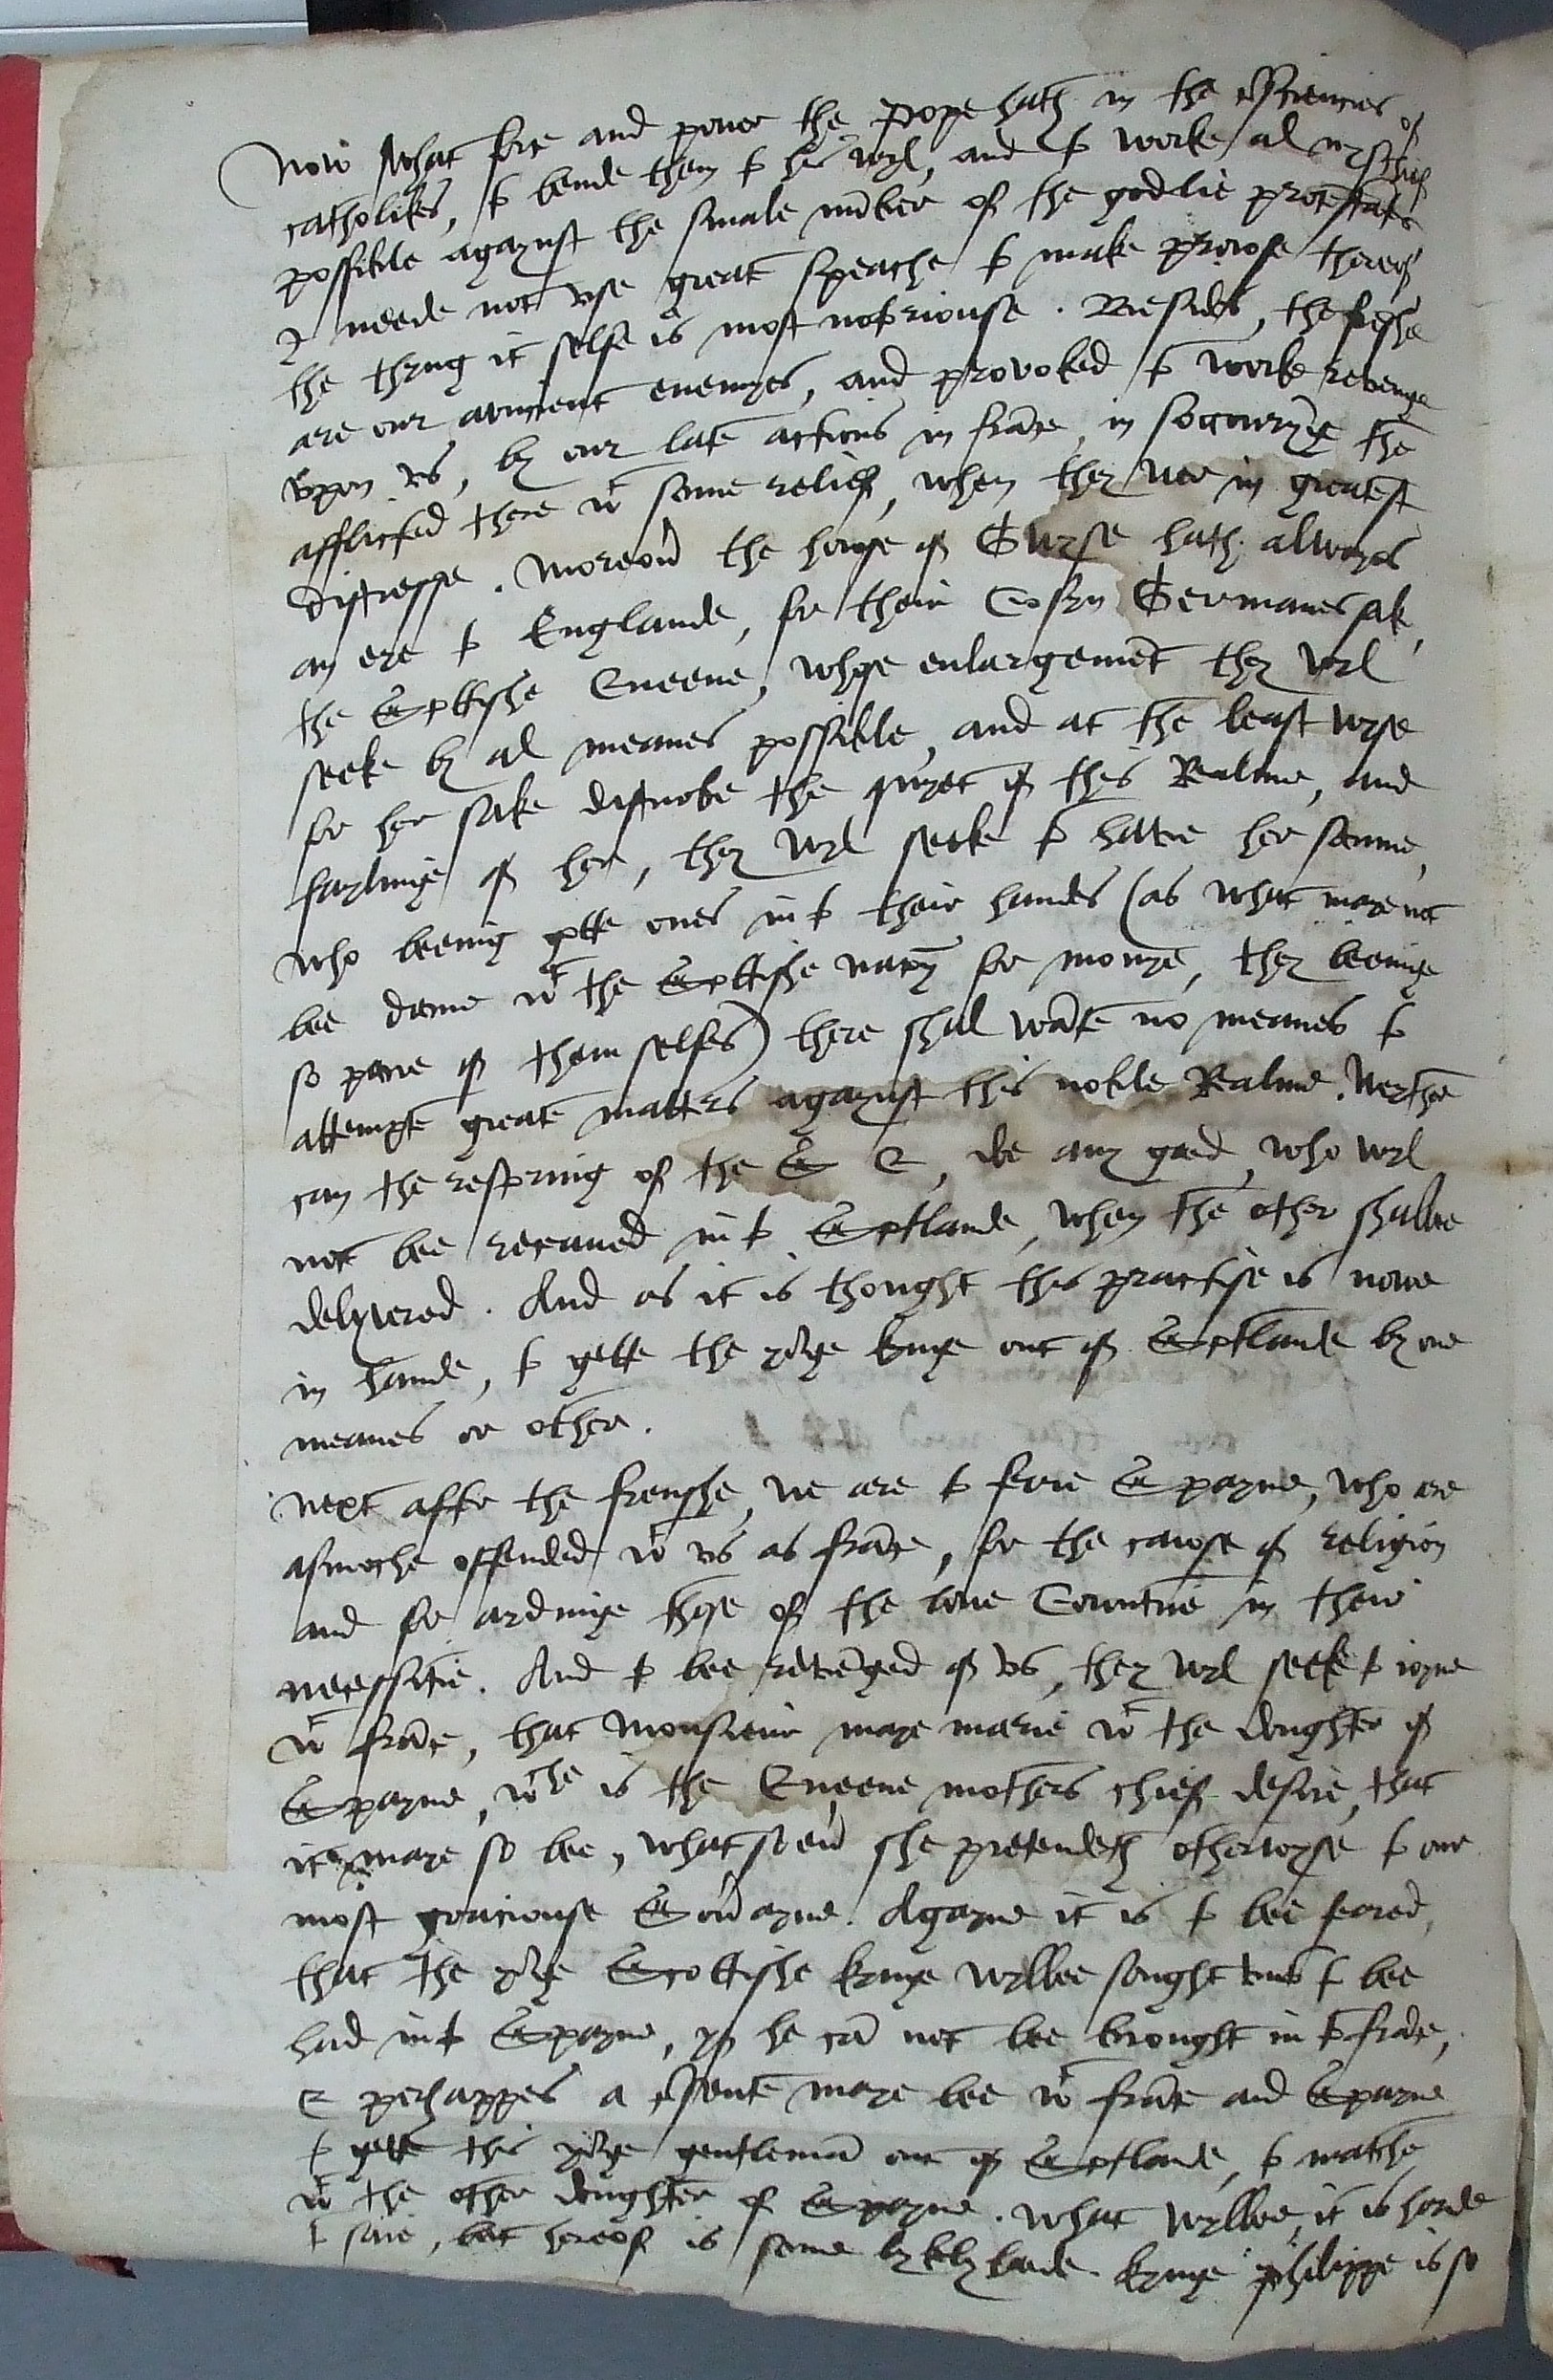 Now what force and power the Pope hath in the cõsciencies of
catholikes, to bende them to his wyl, and to worke al myschief
possible agaynst the smale nũber of the godlie protestãts
I neede not vse great speache to make prowfe thereof
the thyng it selfe is most notoriouse. Besides, the frēshe
are our auncient enemyes, and provoked to worke revenge
vpon vs, by our late actions in frãce, in soccourynge the
afflicted there wt some relief, when they wer in greatest
distresse. Moreoũ the howse of Guyse hath alwayes
an eye to Englande, for their Cosyn Germanes sake,
the Scottyshe Queene, whose enlargemẽt they wyl
seeke by al meanes possible, and at the least wyse
for her sake disturbe the quyet of this Realme, and
faylinge of her, they wyl seeke to haue her sonne,
who beeing gotte ones into their handes (as what maye not
bee donne wt the Scottishe nacõn for monye, they beeinge
so poore of them selfes) there shal wãte no meanes to
attempte great matters agaynst this noble Realme. Neyther
can the restoring of the S Q, doe any good, who wyl
not bee receaued into Scotlande, when the other shalbee
delyvered. And as it is thought this practise is nowe
in hande, to gette the yõge kinge out of Scotlande by one
meanes or other.
Next after the frenshe, we are to feare Spayne, who are
asmoche offended wt vs as frãce, for the cawse of religion
and for aydinge those of the lowe Cowntrie in their
necessitie. And to bee revẽged of vs, they wyl seeke to ioyne
wt frãce, that Monsieur maye marie wt the doughter of
Spayne, wche is the Queene mothers chief desire, that
it maye so bee, whatsoeũ she pretendeth otherwyse to our
most graciouse Soũayne. Agayne it is to bee feared,
that the yõge Scottishe kynge wylbee sought to bee
had into Spayne, yf he cã not bee brought into frãce,
& perhappes a cõsente maye bee wt frãce and Spayne
to gette this yõge gentlemã out of Scotlande, to matche
wt the other doughter of Spayne. What wylbee, it is harde
to saie, but hereof is some lykelyhoode. Kynge Philippe is so